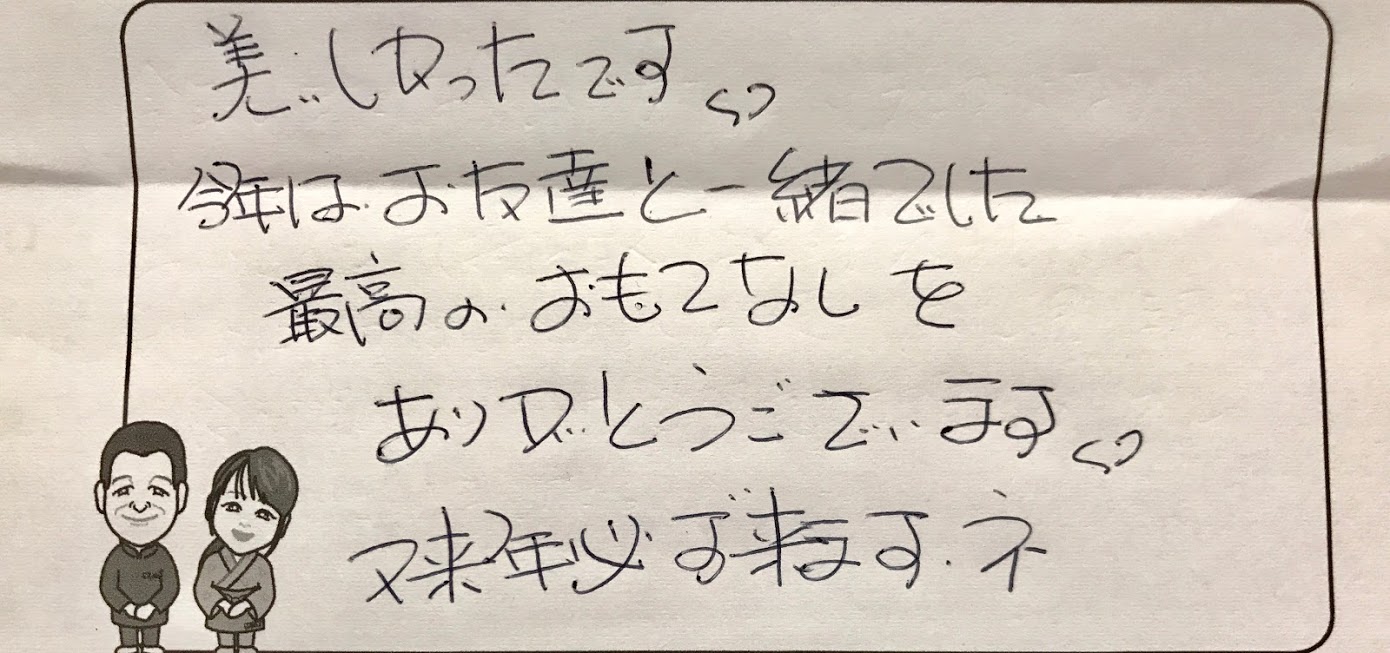 美いしかったです♡
今年はお友達と一緒でした
最高のおもてなしを
ありがとうございます♡
又来年必ず来ますネ